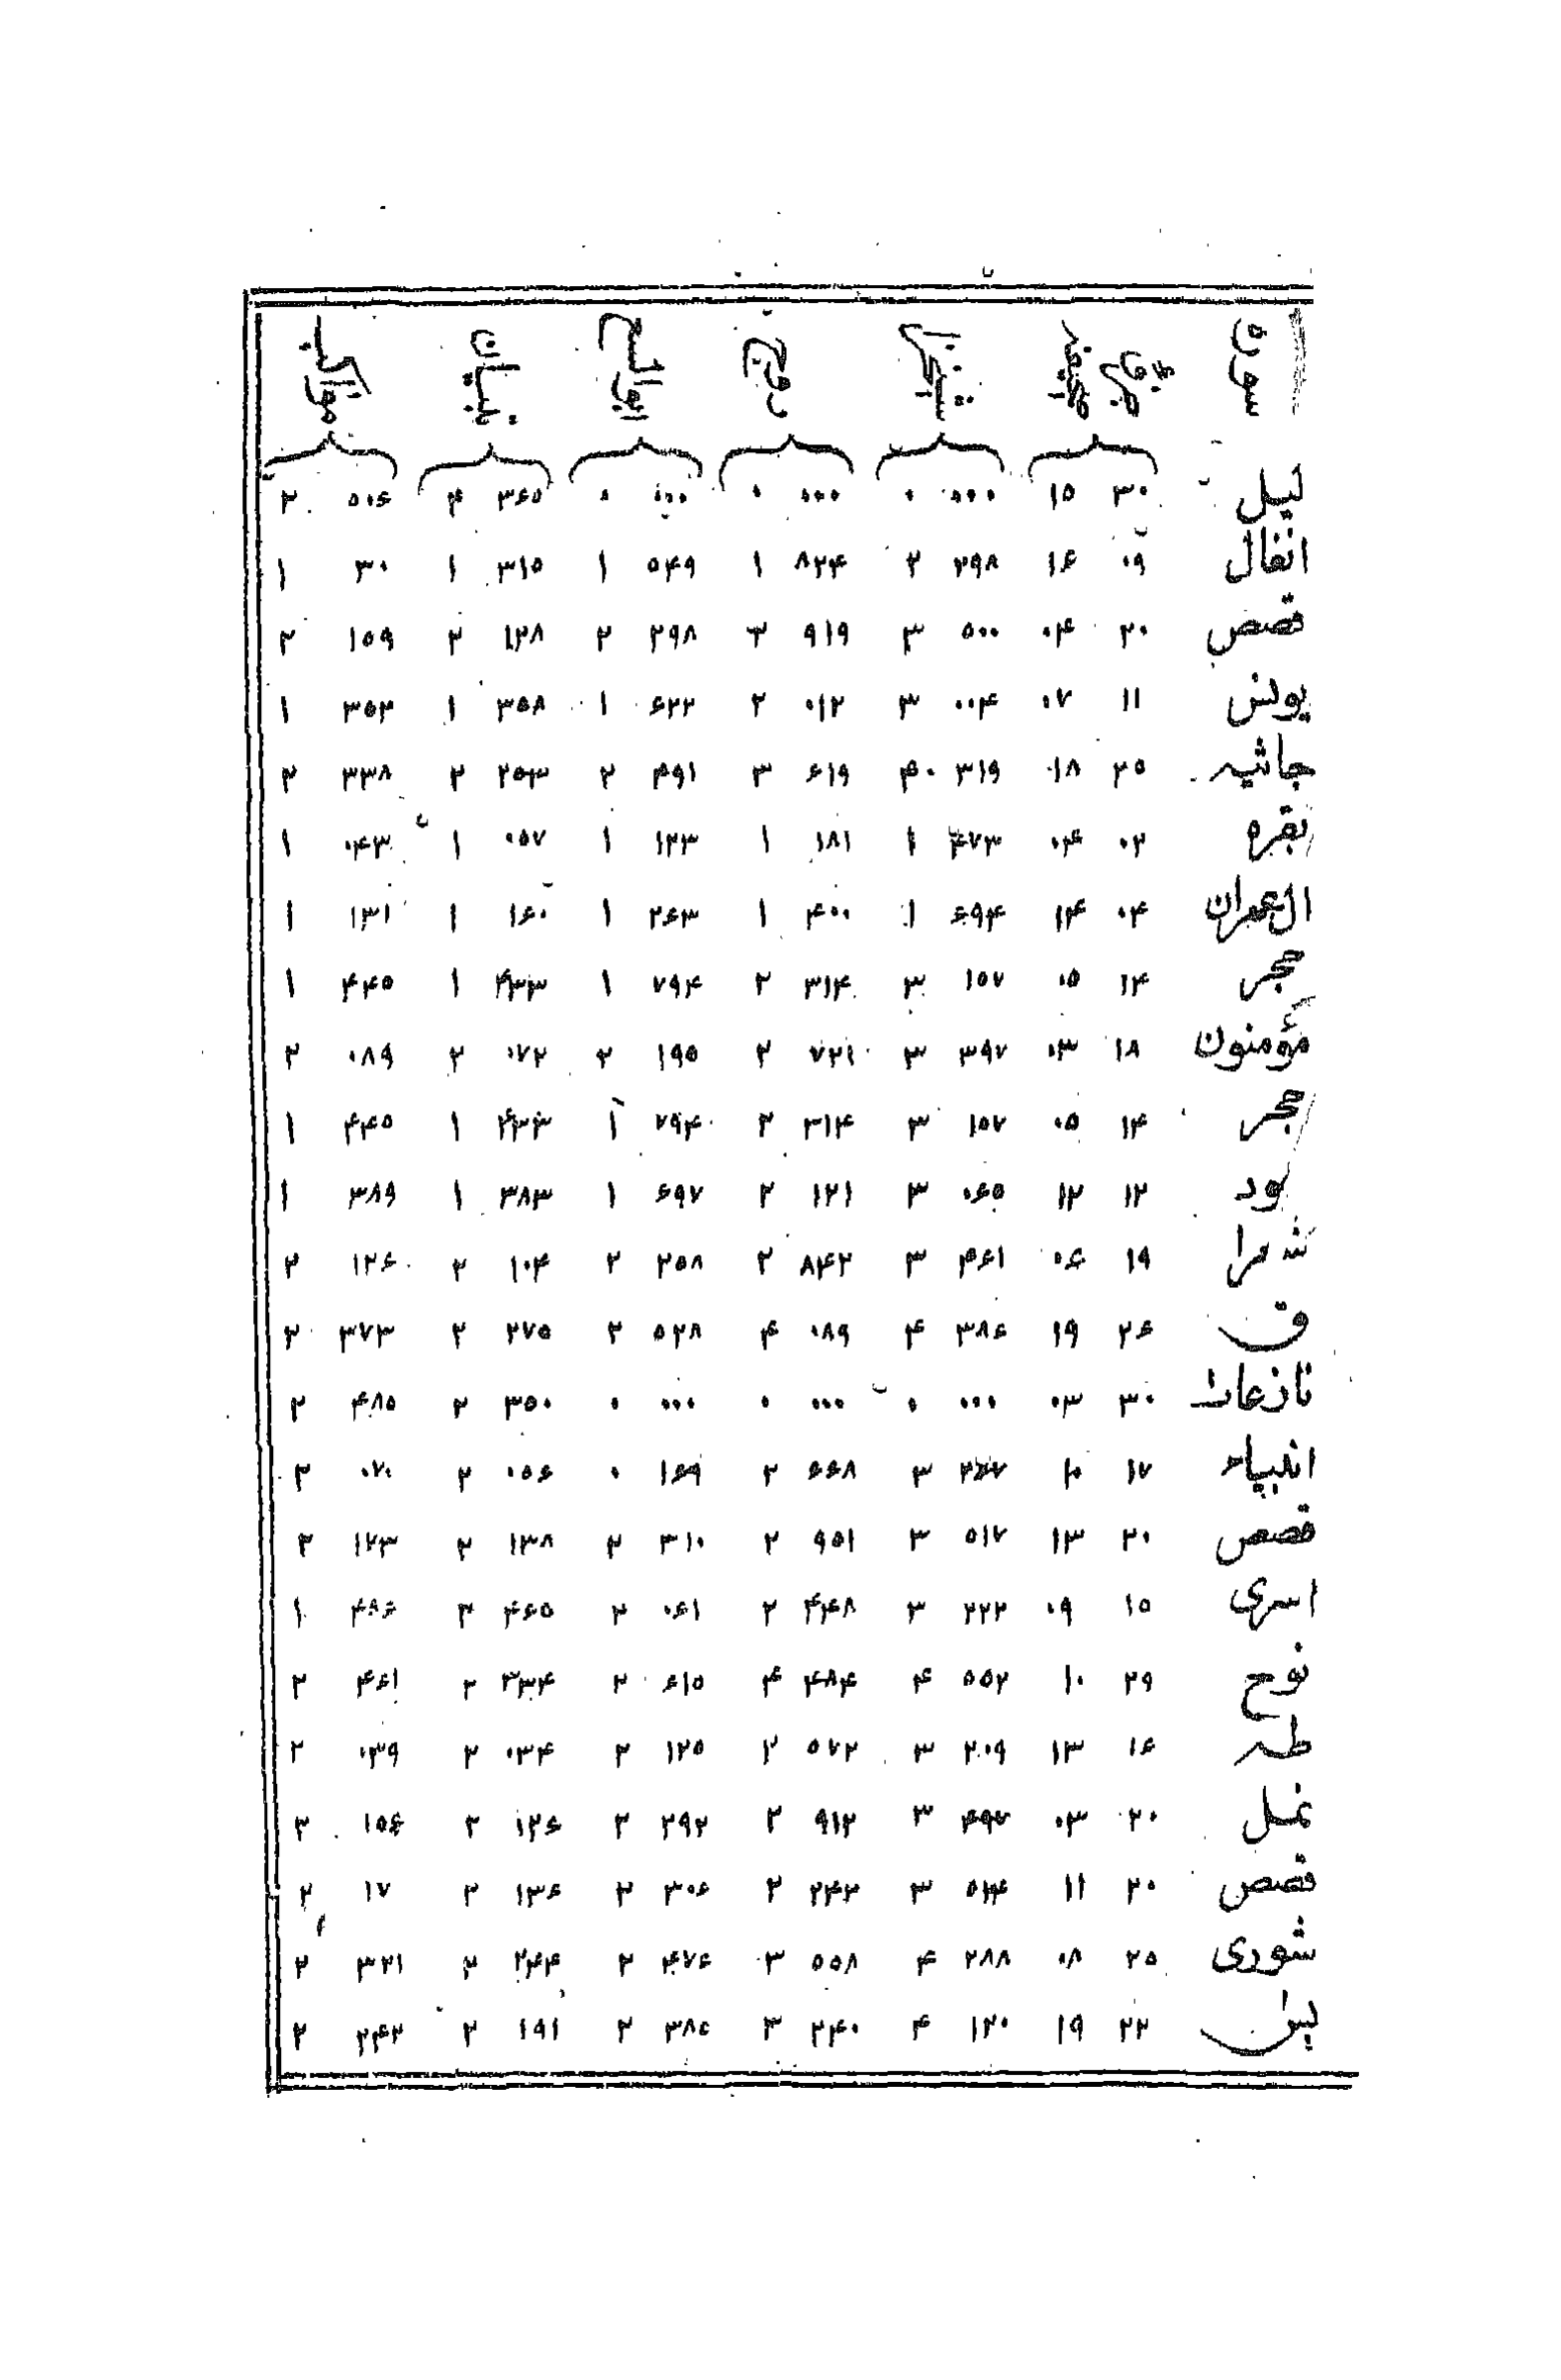 سوره جزو صحیفه روح ابوالفتح تبیان مواکب
لیل ۳۰ ۱۵ ۰۰۰ ۰ ۰۰۰ ۰ ۰۰۰ ۰ ۳۶۵ ۴ ۵۰۶ ۲
انفال ۰۹ ۱۶ ۲۹۸ ۲ ۸۲۴ ۱ ۵۴۹ ۱ ۳۱۵ ۱ ۳۰ ۱
قصص ۲۰ ۰۴ ۵۰۰ ۳ ۹۱۹ ۳ ۲۹۸ ۲ ۱۲۸ ۲ ۱۵۹ ۲
یونس ۱۱ ۰۷ ۰۰۴ ۳ ۰۱۲ ۲ ۶۲۲ ۱ ۳۵۸ ۱ ۳۵۲ ۱
جاثیه ۲۵ ۱۸ ۳۱۹ ۴ ۶۱۹ ۳ ۴۹۱ ۲ ۲۵۳ ۲ ۳۳۸ ۲
بقره ۰۲ ۰۴ ۴۷۳ ۱ ۱۸۱ ۱ ۱۲۳ ۱ ۰۵۷ ۱ ۰۴۳ ۱
ال عمران ۰۴ ۱۴ ۶۹۴ ۱ ۴۰۰ ۱ ۲۶۳ ۱ ۱۶۰ ۱ ۱۳۱ ۱
حجر ۱۴ ۰۵ ۱۵۷ ۳ ۳۱۴ ۲ ۷۹۴ ۱ ۴۳۳ ۱ ۴۴۵ ۱
مؤمنون ۱۸ ۰۳ ۳۹۷ ۳ ۷۲۱ ۲ ۱۹۵ ۲ ۰۷۲ ۲ ۰۸۹ ۲
حجر ۱۴ ۰۵ ۱۵۷ ۳ ۳۱۴ ۲ ۷۹۴ ۱ ۴۳۳ ۱ ۴۴۵ ۱
هود ۱۲ ۱۲ ۰۶۵ ۳ ۱۲۱ ۲ ۶۹۷ ۱ ۳۸۳ ۱ ۳۸۹ ۱
شعرا ۱۹ ۰۶ ۴۶۱ ۳ ۸۴۲ ۲ ۲۵۸ ۲ ۱۰۴ ۲ ۱۲۶ ۲
ق ۲۶ ۱۹ ۳۸۶ ۴ ۰۸۹ ۴ ۵۲۸ ۲ ۲۷۵ ۲ ۳۷۳ ۲
نازعات ۳۰ ۰۳ ۰۰۰ ۰ ۰۰۰ ۰ ۰۰۰ ۰ ۳۵۰ ۲ ۴۸۵ ۲
انبیاء ۱۷ ۱۰ ۳ ۶۶۸ ۲ ۱۶۹ ۰ ۰۵۶ ۲ ۰۷۰ ۲
قصص ۲۰ ۱۳ ۵۱۷ ۳ ۹۵۱ ۲ ۳۱۰ ۲ ۱۳۸ ۲ ۱۷۳ ۲
اسری ۱۵ ۰۹ ۲۲۲ ۳ ۴۴۸ ۲ ۰۶۱ ۲ ۴۶۵ ۲ ۴۸۶ ۱
نوح ۲۹ ۱۰ ۵۵۲ ۴ ۴۸۴ ۴ ۶۱۵ ۲ ۳۳۴ ۲ ۴۶۱ ۲
طه ۱۶ ۱۳ ۲۰۹ ۳ ۵۷۲ ۲ ۱۲۵ ۲ ۰۳۴ ۲ ۰۳۹ ۲
نمل ۲۰ ۰۳ ۴۹۷ ۳ ۹۱۲ ۲ ۲۹۲ ۲ ۱۲۶ ۲ ۱۵۶ ۲
قصص ۲۰ ۱۱ ۵۱۴ ۳ ۲۴۲ ۲ ۳۰۶ ۲ ۱۳۶ ۲ ۱۷ ۲
شوری ۲۵ ۰۸ ۲۸۸ ۴ ۵۵۸ ۳ ۴۷۶ ۲ ۲۴۴ ۲ ۳۲۱ ۲
یس ۲۲ ۱۹ ۱۲۰ ۴ ۲۴۰ ۳ ۳۸۶ ۲ ۱۹۱ ۲ ۲۴۲ ۲